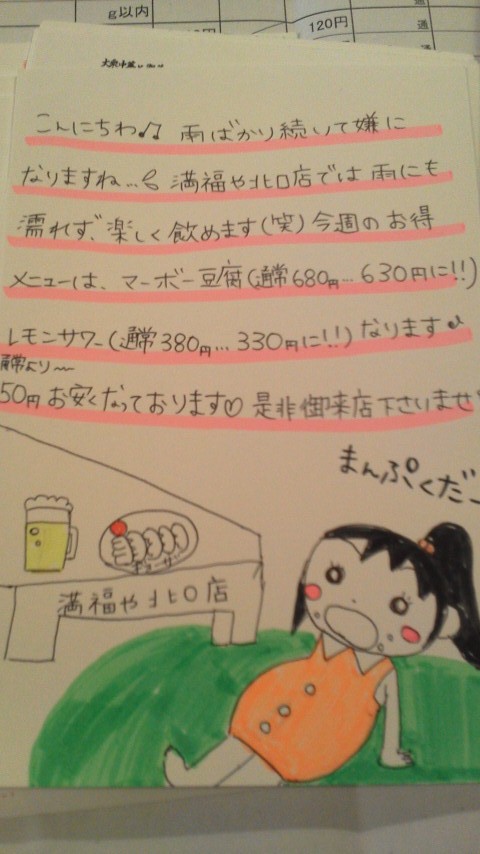 g以内
120円
通
通
こんにちわ♫ 雨ばかり続いて嫌に
なりますね… 満福や北口店では雨にも
濡れず、楽しく飲めます(笑)今週のお得
メニューは、マーボー豆腐(通常680円…630円に!!)
レモンサワー(通常380円…330円に!!)なります♪
通常より〜
50円お安くなっております♡ 是非御来店下さいませ
まんぷくだー
ギョーザ
満福や北口店